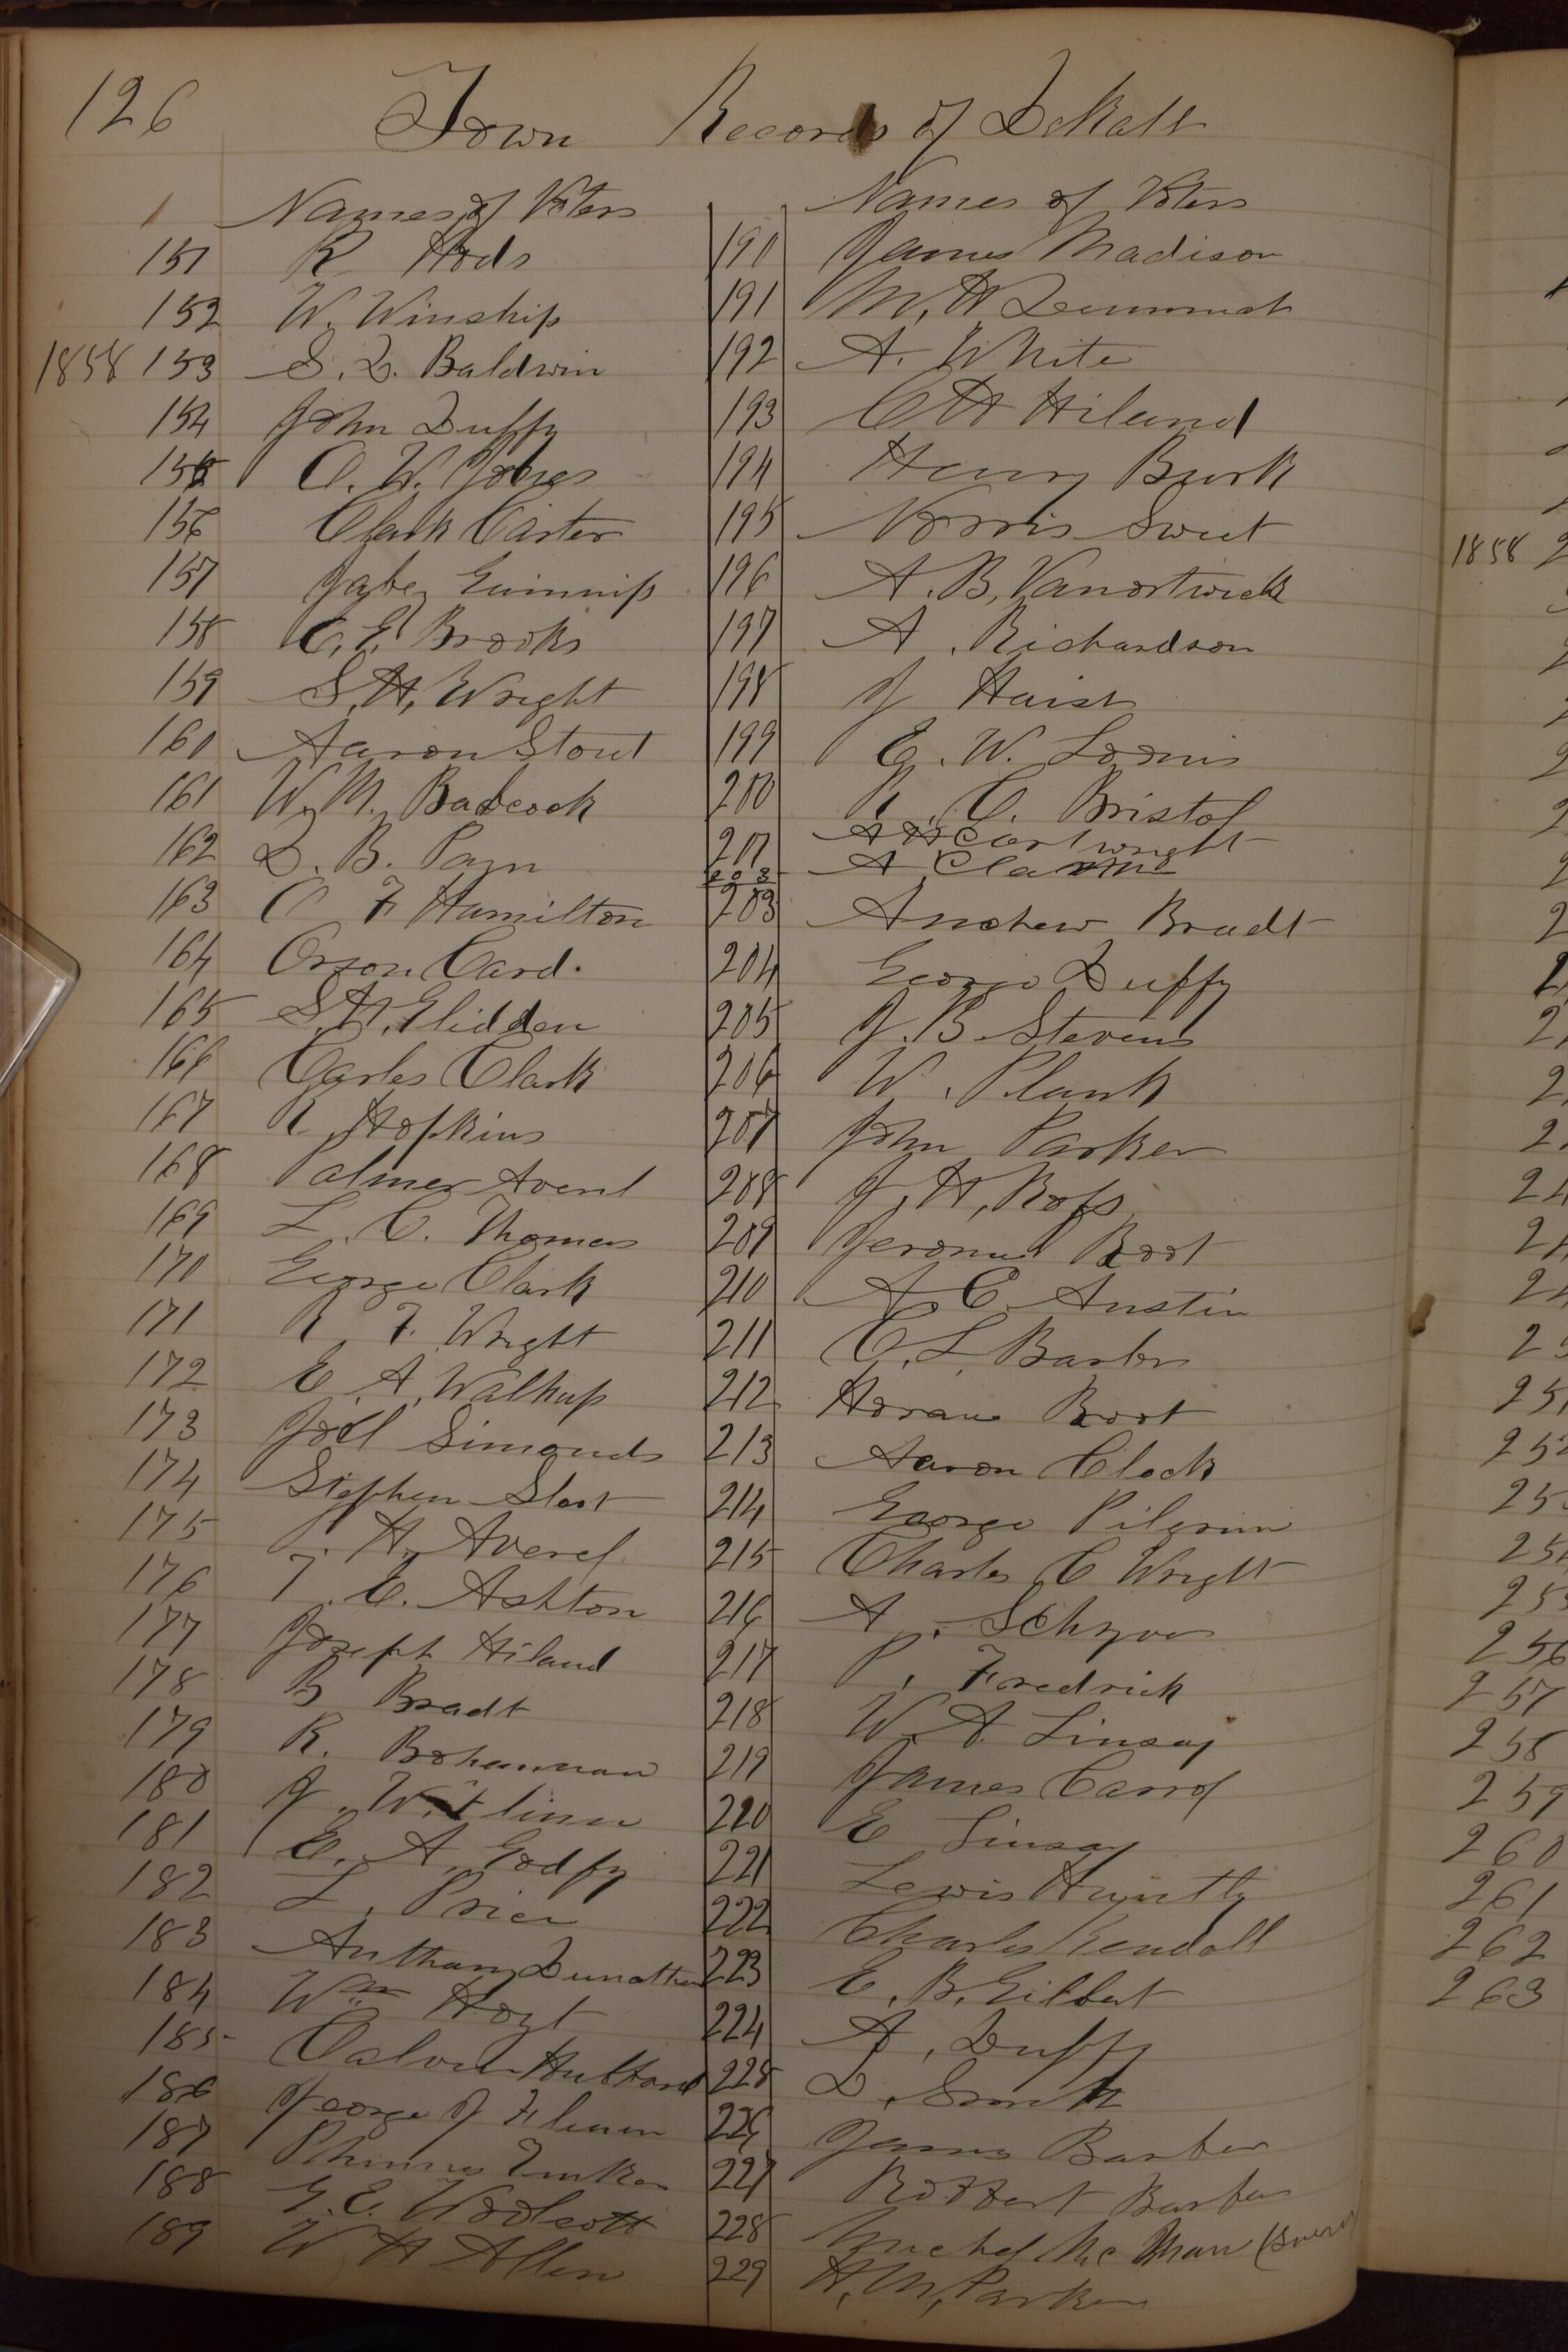 126 Town Records of DeKalb
Names of Voters
151 R Hods
152 W. Winship
1858 153 S. D. Baldwin
154 John Duffy
155 O. W. Jones
156 Clark Carter
157 Jabez
158 C. E. Brooks
159 S. H. Wright
160 Aaron Stout
161 W. M. Badcock
162 D. B. Payn
163 O F Hamilton
164 Orson Card.
165 S. H. Glidden
166 Clark
167 R. Hopkins
168 Palmer Averel
169 L. C. Thomas
170 George Clark
171 R. F. Wright
172 E. A. Walkup
173 Joel Simonds
174 Stephen Sloat
175 H. Averel
176 T. C. Ashton
177 Joseph Hiland
178 B Bradt
179 R. Bohannan
180 J.
181 E. A. Godfy
182 L. Price
183 Anthony
184 Wm Hoyt
185 Calvin Hubbard
186 George J Flinn
187
188 G. E. Woolcott
189 W H Allen
Names of Voters
190 James Madison
191 M. H
192 A. White
193 C H Hiland
194 Henry Burk
195 Norris Sweet
196 A. B. Vanortwick
197 A. Richardson
198 J Haish
199 E. W. Loomis
200 R. C. Bristol
201 A H Cartwright
202 A
203 Andrew Bradt
204 George Duffy
205 J. B. Stevens
206 W. Plank
207 John Parker
208 J. H. Ross
209 Jerome Root
210 A. C. Austin
211 C. L. Barber
212 Horace Root
213 Aaron Clock
214 George Pilgrim
215 Charles C Wright
216 A.
217 P. Fredrick
218 W. A. Linsay
219 James Carrol
220 E Linsay
221 Lewis Huntly
222 Charles Kendall
223 E. B. Gilbert
224 A. Duffy
225 D. Smith
226 James Barber
227 Robbert Barber
228 Michel Mc Man
229 H. M. Parker
1858
251
256
257
258
259
260
261
262
263